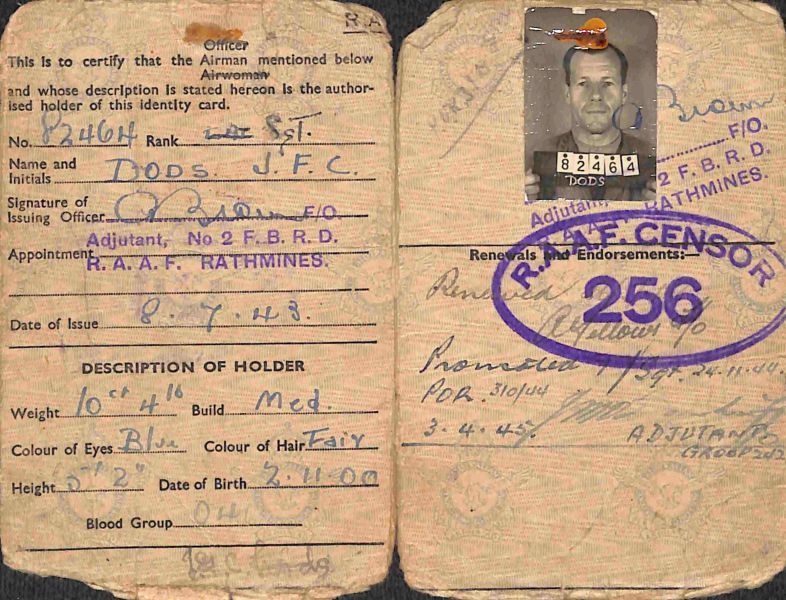 R.A
Officer
This is to certify that the Airman mentioned below
Airwoman
and whose description is stated hereon is the author-
ised holder of this identity card.
No. 82464 Rank Sgt.
Name and
Initials DODS. J. F. C.
Signature of
Issuing Officer Brown F/O.
Adjutant, No 2 F. B. R. D.
Appointment
R. A. A. F. RATHMINES.
Date of Issue 8. 7. 43.
DESCRIPTION OF HOLDER
Weight 10 st 4 lb Build Med.
Colour of Eyes Blue Colour of Hair Fair
Height 5' 2" Date of Birth 2.11.00
Blood Group 04
82464
DODS
Brown
F/O.
2 F. B. R. D.
Adjutant,
RATHMINES.
Renewals and Endorsements:—
R.A.A.F. CENSOR
256
Renewed
Promoted T/Sgt. 24.11.44.
POR. 310/44
3.4.45.
ADJUTANT
GROUP